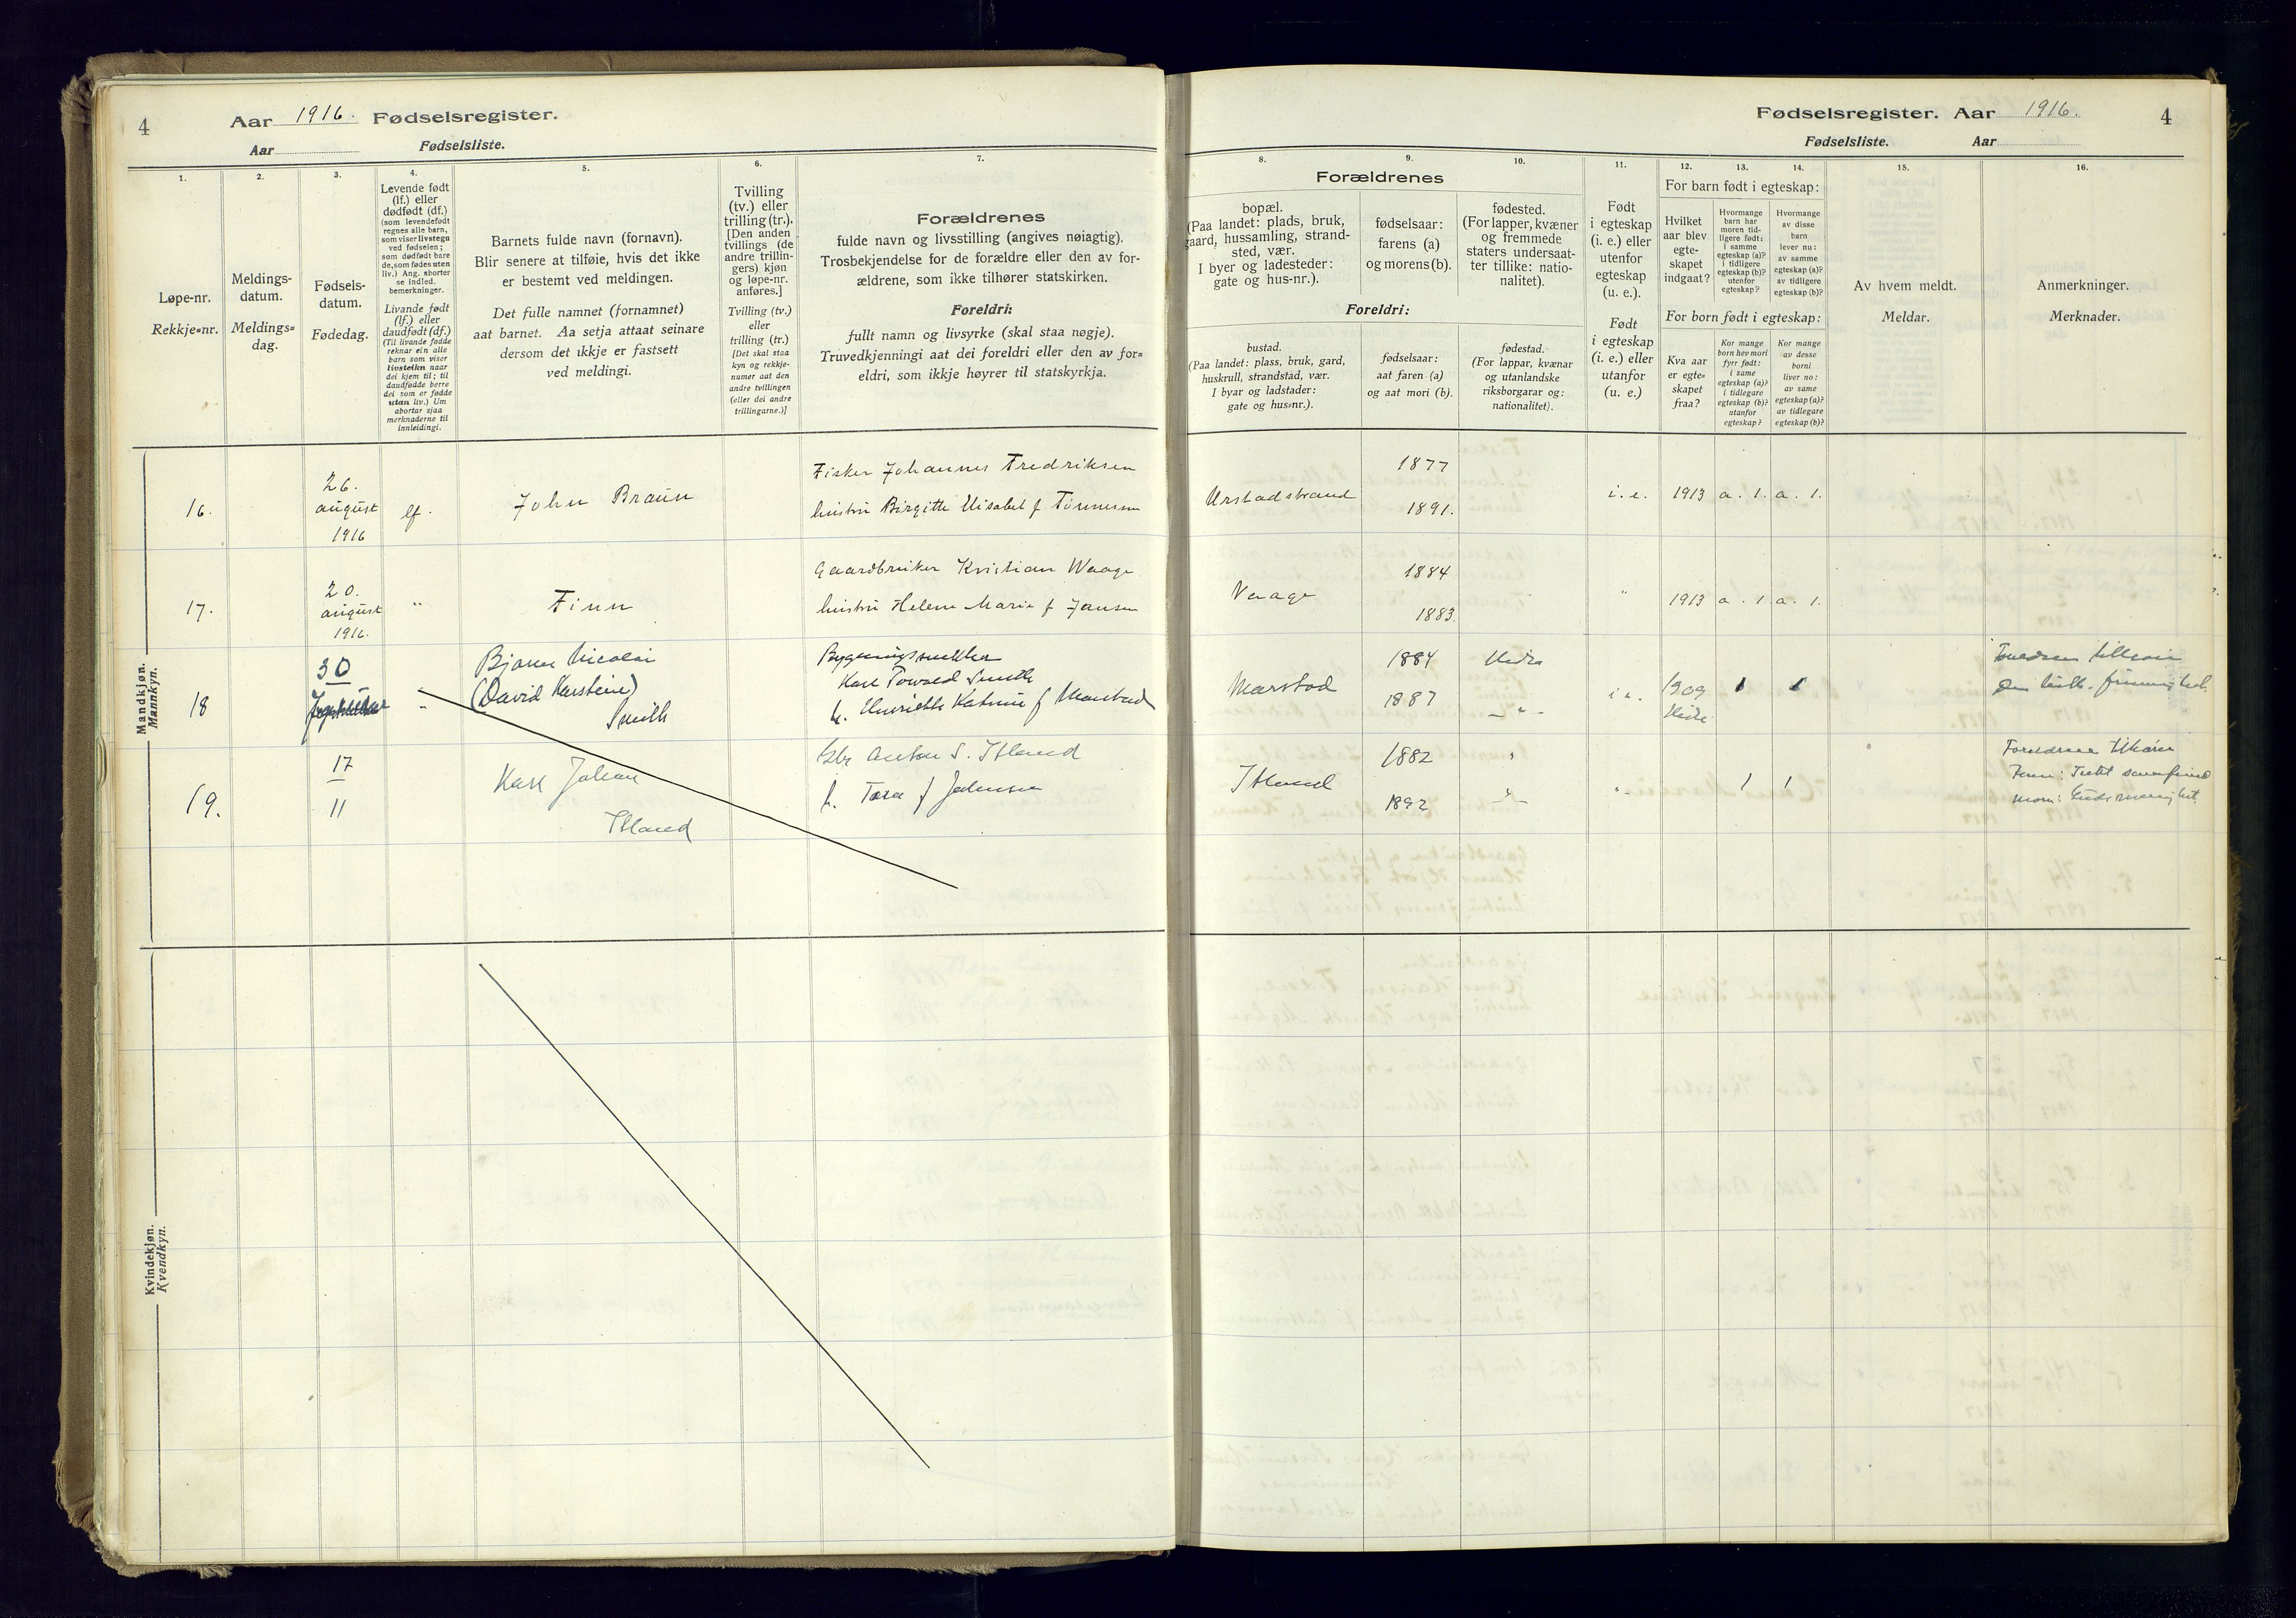 4
Aar 1916. Fødselsregister.
Aar Fødselsliste.
1.
Løpe-nr.
Rekkje=nr.
2.
Meldings-
datum.
Meldings=
dag.
3.
Fødsels-
datum.
Fødedag.
4.
Levende født
(lf.) eller
dødfødt (df.)
(som levendefødt
regnes alle barn,
som viser livstegn
ved fødselen;
som dødfødt bare
de, som fødes uten
liv.) Ang. aborter
se indled.
bemerkninger.
Livande født
(lf.) eller
daudfødt (df.)
(Til livande fødde
reknar ein alle
barn som viser
livsteikn naar
dei kjem til; til
daudfødde berre
dei som er fødde
utan liv.) Um
abortar sjaa
merknaderne til
innleidingi.
5.
Barnets fulde navn (fornavn).
Blir senere at tilføie, hvis det ikke
er bestemt ved meldingen.
Det fulle namnet (fornamnet)
aat barnet. Aa setja attaat seinare
dersom det ikkje er fastsett
ved meldingi.
6.
Tvilling
(tv.) eller
trilling (tr.).
[Den anden
tvillings (de
andre trillin-
gers) kjøn
og løpe-nr.
anføres.]
Tvilling (tv.)
eller
trilling (tr.)
[Det skal staa
kyn og rekkje-
numer aat den
andre tvillingen
(eller dei andre
trillingarne.)]
7.
Forældrenes
fulde navn og livsstilling (angives nøiagtig).
Trosbekjendelse for de forældre eller den av for-
ældrene, som ikke tilhører statskirken.
Foreldri:
fullt namn og livsyrke (skal staa nøgje).
Truvedkjenningi aat dei foreldri eller den av for=
eldri, som ikkje høyrer til statskyrkja.
Mandkjøn.
Mannkyn.
16.
26.
august
1916
lf.
John Braun
Fisker Johannes Fredriksen
hustru Birgitte Elisabet f Tønnesen
17.
20.
august
1916.
"
Finn
Gaardbruker Kristian Waage
hustru Helene Marie f Jansen
18
30
"
Bjarne Nicolai
(David Karsteine)
Smith
Karl Smith
h. Henriette Katrine f
19.
17
11
Karl Johan
Itland
Gbr Anton S. Itland
h. Tora f Johnsen
Kvindekjøn.
Kvendkyn.
Fødselsregister. Aar 1916.
4
Fødselsliste. Aar
Forældrenes
8.
bopæl.
(Paa landet: plads, bruk,
gaard, hussamling, strand-
sted, vær.
I byer og ladesteder:
gate og hus-nr.).
Foreldri:
bustad.
(Paa landet: plass, bruk, gard,
huskrull, strandstad, vær.
I byar og ladstader:
gate og hus=nr.).
9.
fødselsaar:
farens (a)
og morens (b).
fødselsaar:
aat faren (a)
og aat mori (b).
10.
fødested.
(For lapper, kvæner
og fremmede
staters undersaat-
ter tillike: natio-
nalitet).
fødestad.
(For lappar, kvænar
og utanlandske
riksborgarar og:
nationalitet).
11.
Født
i egteskap
(i. e.) eller
utenfor
egteskap
(u. e.).
Født
i egteskap
(i. e.) eller
utanfor
(u. e.)
For barn født i egteskap:
12.
Hvilket
aar blev
egte-
skapet
indgaat?
13.
Hvormange
barn har
moren tid-
ligere født:
i samme
egteskap (a)?
i tidligere
egteskap (b)?
utenfor
egteskap?
14.
Hvormange
av disse
barn
lever nu:
av samme
egteskap (a)?
av tidligere
egteskap (b)?
For born født i egteskap:
Kva aar
er egte=
skapet
fraa?
Kor mange
born hev mori
fyrr født:
i same
egteskap (a)?
i tidlegare
egteskap (b)?
utanfor
egteskap?
Kor mange
av desse
borni
liver no:
av same
egteskap (a)?
av tidlegare
egteskap (b)?
15.
Av hvem meldt.
Meldar.
16.
Anmerkninger.
Merknader.
Urstadstrand
1877
1891.
i. e. 1913 a. 1. a. 1.
Vaage
1884
1883.
" 1913 a. 1 a. 1.
Marstad
1884 Hidra
1887 — " —
i e. 1909 1 1
Hidra
Itland
1882 "
1892 — " —
" 1 1